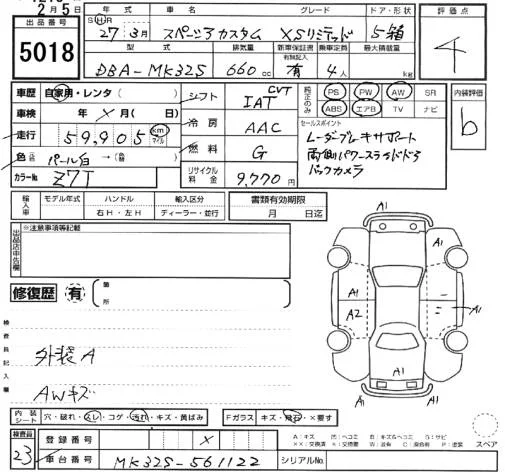 2月5日
出品番号
5018
年式 車名 グレード ドア・形状
S H R
27年 3月 スペーシアカスタム XSリミテッド 5箱
型式 排気量 新車保証書 乗車定員 最大積載量
有無記入
DBA-MK32S 660cc 有 4人 kg
評価点
4
車歴 自家用・レンタ(
車検 年 月( 日)
走行 59,905 km マイル
色 パール白 →
カラーNo. Z7T
シフト CVT IAT
冷房 AAC
燃料 G
リサイクル料金 9,770円
純正のみ
PS PW AW SR
ABS エアB TV ナビ
セールスポイント
レーダーブレーキサポート
両側パワースライドドア
バックカメラ
内装評価
b
輸入車 モデル年式 ハンドル 輸入区分
右H・左H ディーラー・並行
書類有効期限
月 日迄
出品店申告欄
※注意事項等記載
修復歴 有 箇所
検査員記入欄
外装A
AWキズ
A1
A1
A1
A1
A2
A1
A1
内装シート 穴・破れ・スレ・コゲ・汚れ・キズ・黄ばみ
Fガラス キズ・飛石・×要す
スペア
検査員
23
登録番号 ×
車台番号 MK32S-561122
シリアルNo.